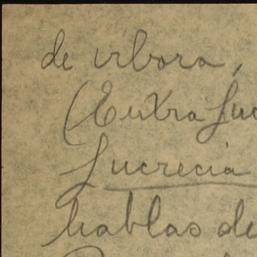 de vibora,
(Entra Luc
Lucrecia
hablas de